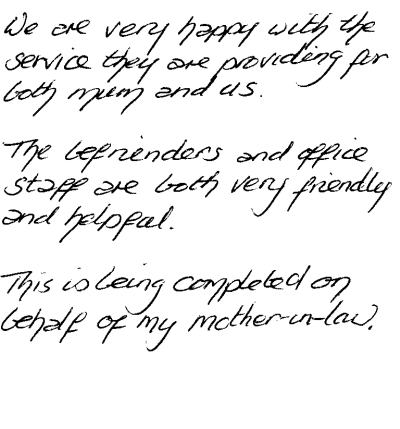 We are very happy with the
service they are providing for
both mum and us.
The befrienders and office
staff are both very friendly
and helpful.
This is being completed on
behalf of my mother-in-law.